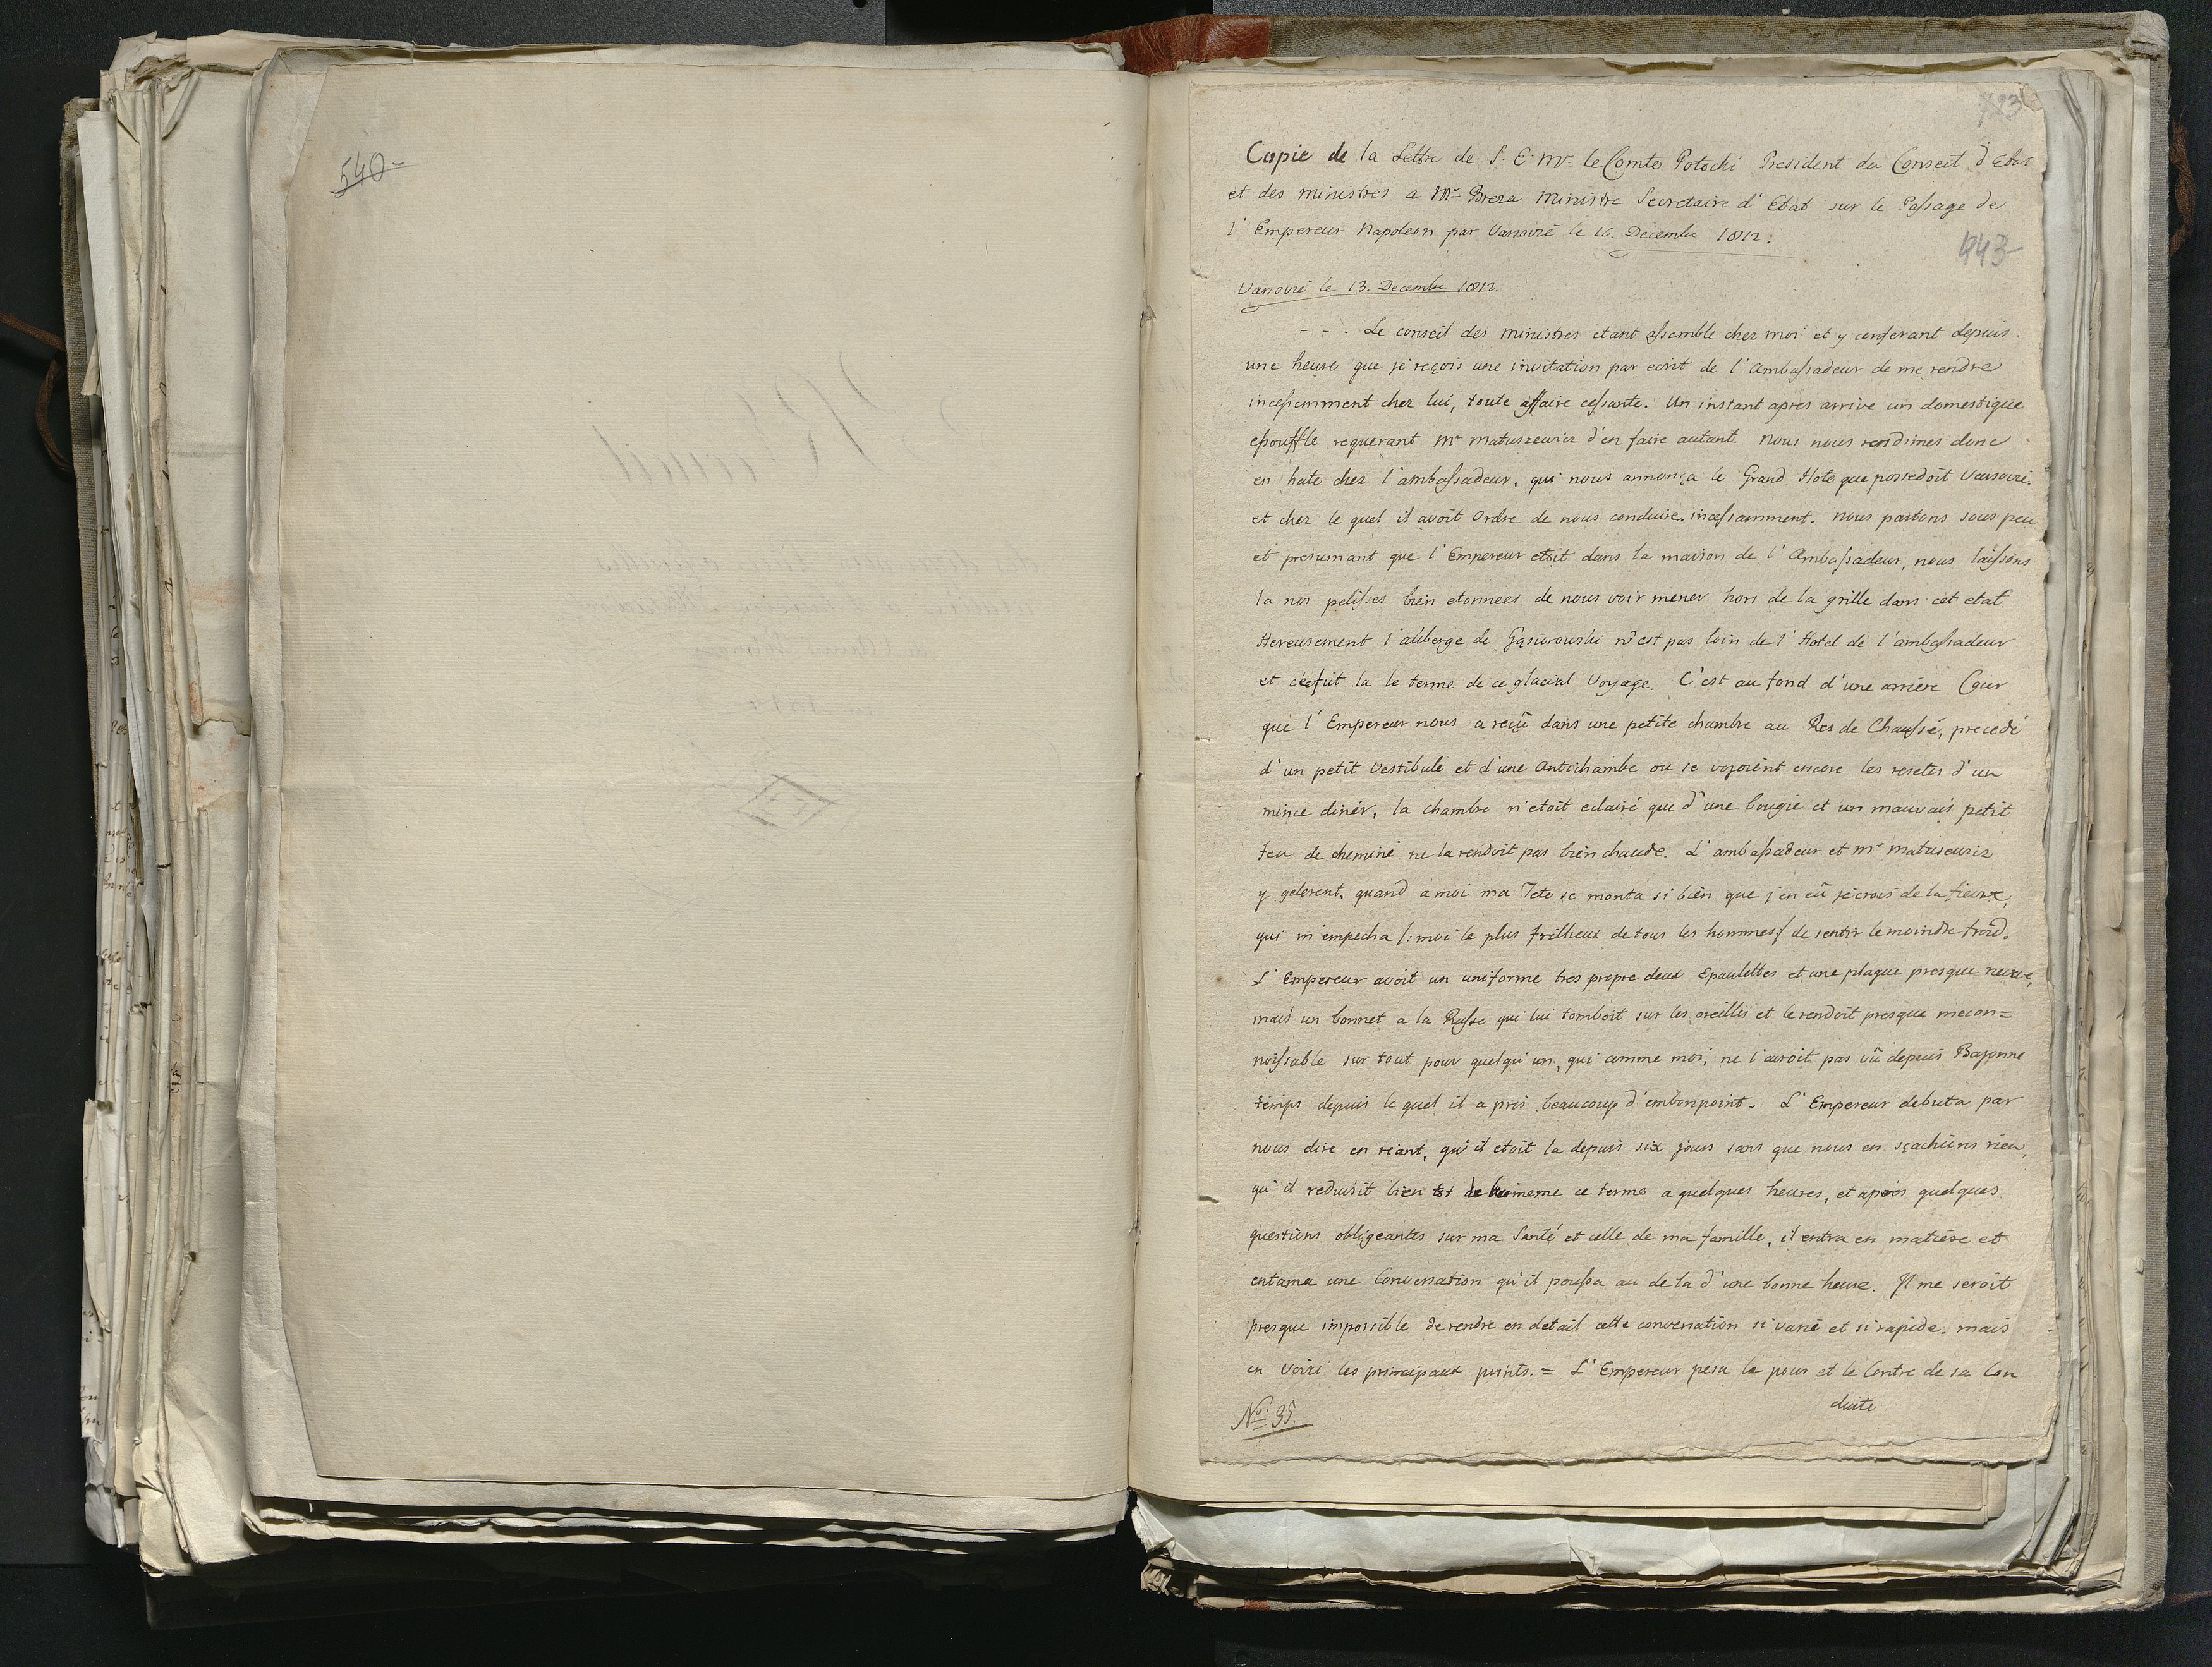 540
443
Copie de la Lettre de S. E. Mr. le Comte Potocki President du Conseil d'Etat
et des ministres a Mr Breza Ministre Secretaire d'Etat sur le Passage de
l'Empereur Napoleon par Varsovie le 10. Decembre 1812.
Varsovie le 13. Decembre 1812.
- - . Le conseil des ministres etant assemble chez moi et y conferant depuis
une heure que je reçois une invitation par ecrit de l'Ambassadeur de me rendre
incessemment chez lui, toute affaire cessante. Un instant apres arrive un domestique
essouffle requerant Mr Matuszewicz d'en faire autant. Nous nous rendimes donc
en hate chez l'ambassadeur, qui nous annonça le Grand Hote que possedoit Varsovie.
et chez le quel il avoit Ordre de nous conduire incessamment. Nous partons sous peu
et presumant que l'Empereur etoit dans la maison de l'Ambassadeur, nous laissons
la nos pelisses bien etonnées de nous voir mener hors de la grille dans cet etat.
Hereusement l'auberge de Gąsiorowski n'est pas loin de l'Hotel de l'ambassadeur
et ce fut la le terme de ce glacial Voyage. C'est au fond d'une arriere Cour
que l'Empereur nous a reçû dans une petite chambre au Res de Chaussé, precedé
d'un petit Vestibule et d'une Antichambe ou se voyoient encore les restes d'un
mince diner, la chambre n'etoit eclairé que d'une bougie et un mauvais petit
feu de cheminé ne la rendoit pas bien chaude. L'ambassadeur et Mr Matusewicz
y gelerent, quand a moi ma Tete se monta si bien que j'en eû je crois de la fievre,
qui m'empecha /:moi le plus frilheux de tous les hommes/ de sentir le moindre froid.
L'Empereur avoit un uniforme tres propre deux Epaulettes et une plaque presque neuve,
mais un bonnet a la Russe qui lui tomboit sur les oreilles et le rendoit presque mecon=
noissable sur tout pour quelqu'un, qui comme moi, ne l'avoit pas vû depuis Bayonne
temps depuis le quel il a pris beaucoup d'embonpoint. L'Empereur debuta par
nous dire en riant, qu'il etoit la depuis six jours sans que nous en sçachions rien,
qu'il reduisit bien tot de lui meme ce terme a quelques heures, et apres quelques
questions obligeantes sur ma Santé et celle de ma famille, il entra en matiere et
entama une Conversation qu'il poussa au de la d'une bonne heure. Il me seroit
presque impossible de rendre en detail cette conversation si varié et si rapide. mais
en voici les principaux points. = L'Empereur pesa le pour et le Contre de sa Con
duite
No. 35.